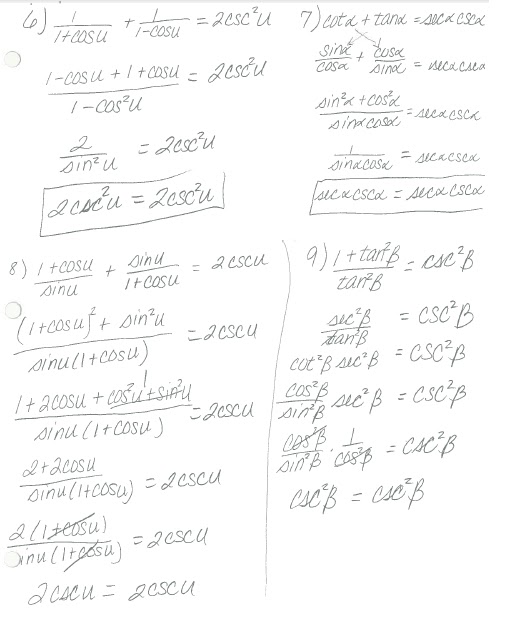 6) 1/(1+cosu) + 1/(1-cosu) = 2csc²u
(1-cosu + 1+cosu)/(1-cos²u) = 2csc²u
2/sin²u = 2csc²u
2csc²u = 2csc²u
7) cotα + tanα = secαcscα
sinα/cosα + cosα/sinα = secαcscα
(sin²α + cos²α)/(sinαcosα) = secαcscα
1/(sinαcosα) = secαcscα
secαcscα = secαcscα
8) (1+cosu)/sinu + sinu/(1+cosu) = 2cscu
((1+cosu)² + sin²u)/(sinu(1+cosu)) = 2cscu
1
(1+2cosu+cos²u+sin²u)/(sinu(1+cosu)) = 2cscu
(2+2cosu)/(sinu(1+cosu)) = 2cscu
2(1+cosu)/(sinu(1+cosu)) = 2cscu
2cscu = 2cscu
9) (1+tan²β)/tan²β = csc²β
sec²β/tan²β = csc²β
cot²β sec²β = csc²β
cos²β/sin²β sec²β = csc²β
cos²β/sin²β · 1/cos²β = csc²β
csc²β = csc²β